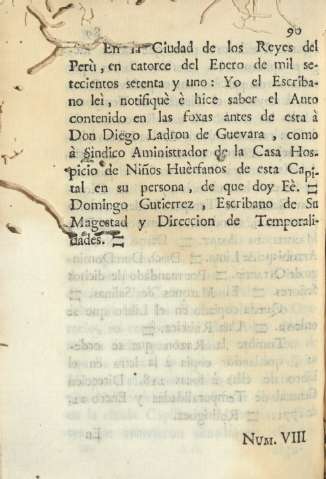 90
En la Ciudad de los Reyes del
Perù, en catorce del Enero de mil se-
tecientos setenta y uno: Yo el Escriba-
no leì, notifiquè è hice saber el Auto
contenido en las foxas antes de esta à
Don Diego Ladron de Guevara, como
à Sindico Aministrador de la Casa Hos-
picio de Niños Huèrfanos de esta Capi-
tal en su persona, de que doy Fè.
Domingo Gutierrez, Escribano de Su
Magestad y Direccion de Temporali-
dades.
NUM. VIII